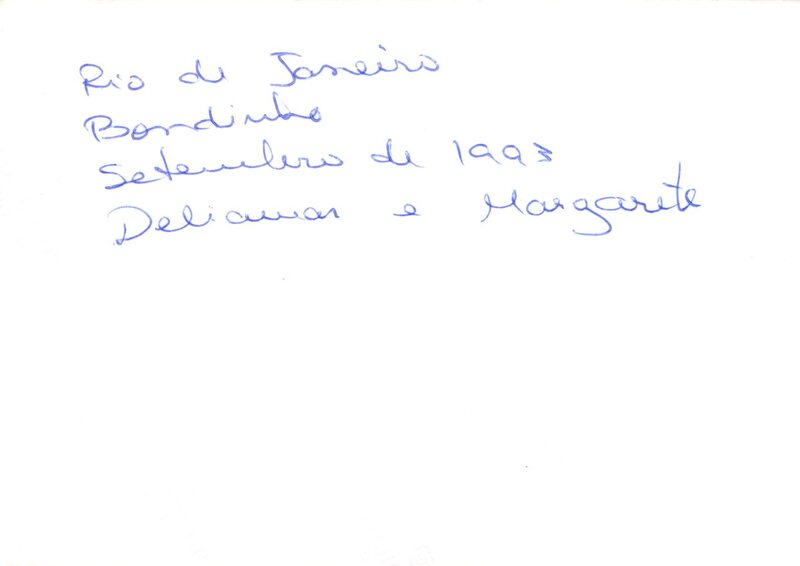 Rio de Janeiro
Bondinho
Setembro de 1993
Deliamar e Margarete